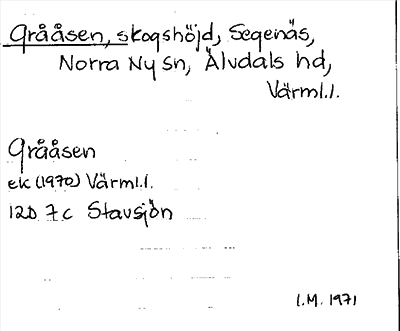 Grååsen, skogshöjd, Segenäs,
Norra Ny sn, Älvdals hd,
Värml.l.
Grååsen
ek (1970) Värml.l.
12D 7c Stavsjön
I.M. 1971